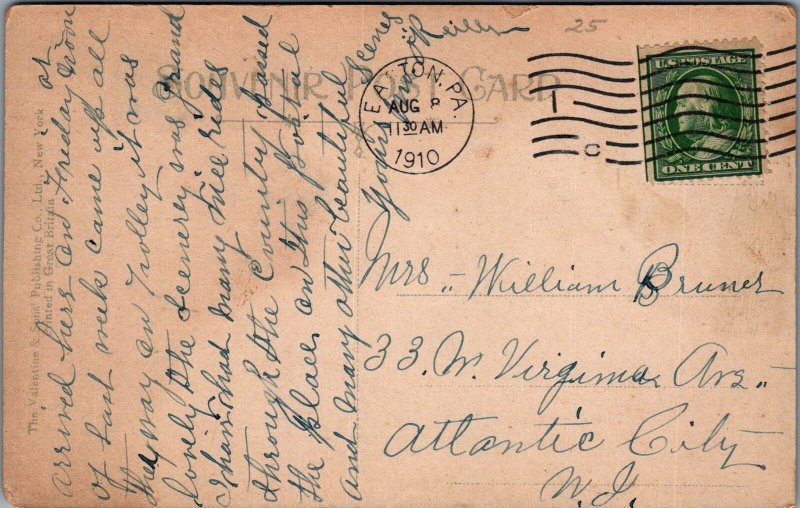 25
SOUVENIR POST CARD
EASTON, PA.
AUG 8
11 30 AM
1910
1
C
U.S. POSTAGE
ONE CENT
Mrs. William Bruner
33. N. Virginia Ave.
Atlantic City
N.J.
arrived here on Friday noon
of last week came up all
the way on trolley it was
lovely the scenery was grand
I have had many nice rides
through the Country, found
the place on this Postal
and many other beautiful
scenes
Yours
The Valentine & Sons' Publishing Co., Ltd., New York
Printed in Great Britain